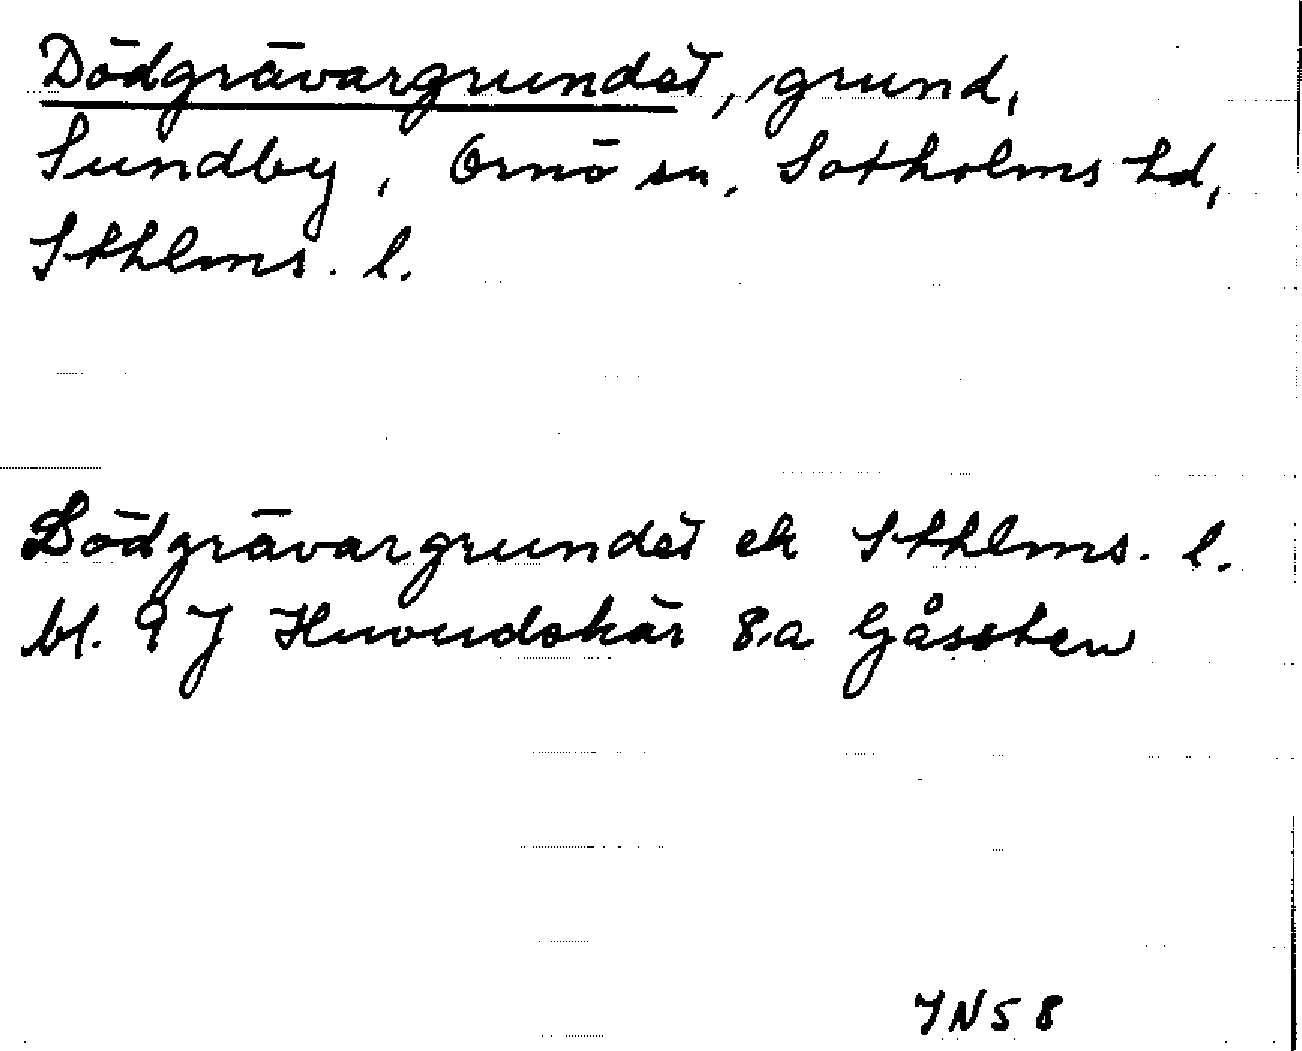 Dödgrävargrundet, grund,
Sundby, Ornö sn, Sotholms hd,
Sthlms. l.
Dödgrävargrundet ek Sthlms. l.
bl. 9J Huvudskär 8.a Gåssten
JN58